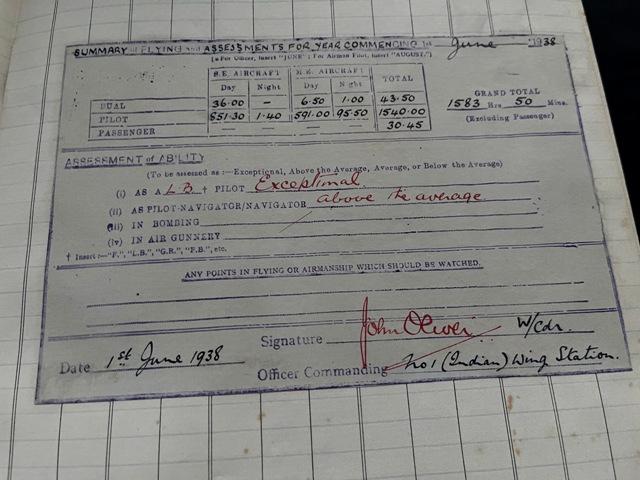 SUMMARY of FLYING and ASSESSMENTS FOR YEAR COMMENCING 1st June 1938
[* For Officer, insert "JUNE"; For Airman Pilot, insert "AUGUST."]
S.E. AIRCRAFT M.E. AIRCRAFT TOTAL
Day Night Day Night
GRAND TOTAL
DUAL 36.00 — 6.50 1.00 43.50
1583 Hrs 50 Mins.
PILOT 851.30 1.40 591.00 95.50 1540.00
(Excluding Passenger)
PASSENGER — — — — 30.45
ASSESSMENT of ABILITY
(To be assessed as :—Exceptional, Above the Average, Average, or Below the Average)
(i) AS A L.B. † PILOT Exceptional.
(ii) AS PILOT-NAVIGATOR/NAVIGATOR above the average.
(iii) IN BOMBING
(iv) IN AIR GUNNERY
† Insert :—"F.", "L.B.", "G.R.", "F.B.", etc.
ANY POINTS IN FLYING OR AIRMANSHIP WHICH SHOULD BE WATCHED.
Signature John Oliver W/Cdr.
Date 1st June 1938
Officer Commanding No 1 (Indian) Wing Station.